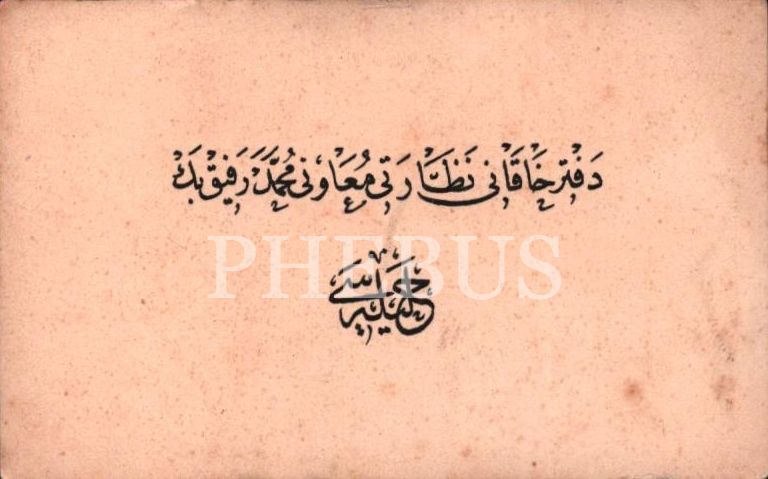 دفتر خاقانی نظارتی معاونی محمد رفیق بك
PHEBUS